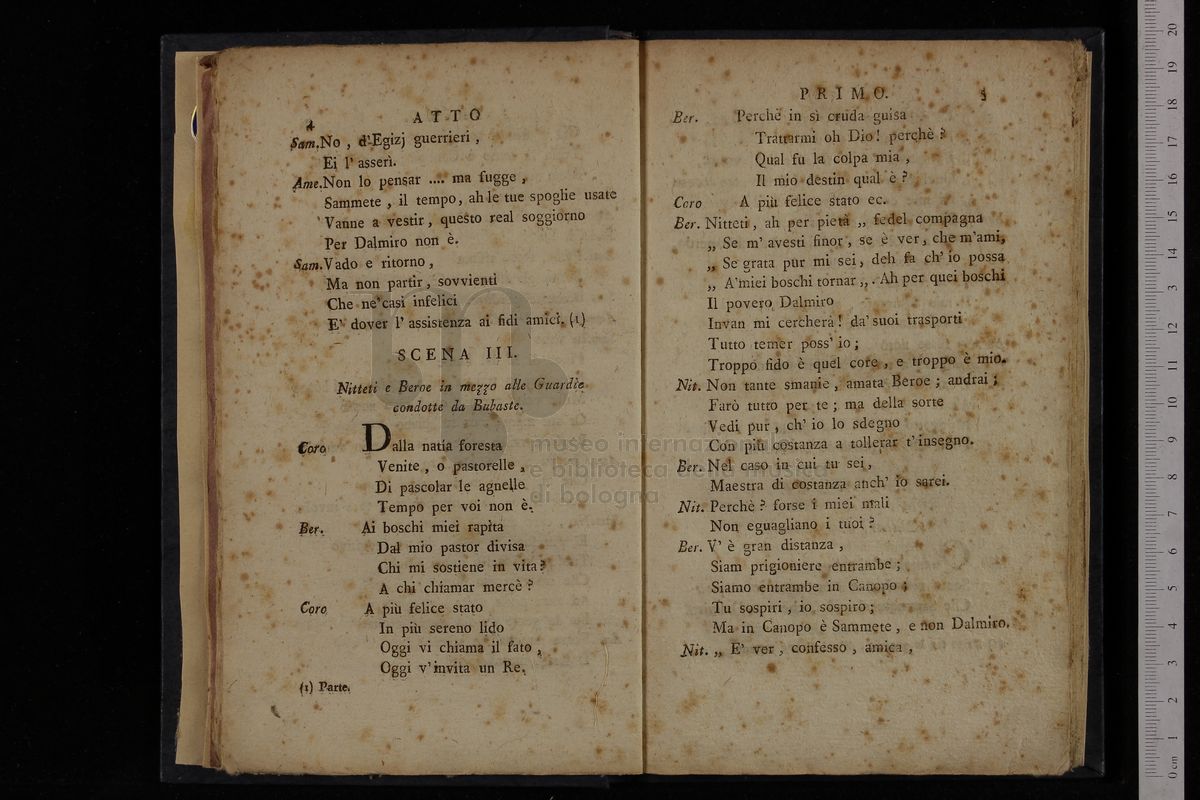 4
ATTO
Sam. No , d'Egizj guerrieri ,
Ei l' asserì.
Ame. Non lo pensar .... ma fugge ,
Sammete , il tempo, ah le tue spoglie usate
Vanne a vestir, questo real soggiorno
Per Dalmiro non è.
Sam. Vado e ritorno ,
Ma non partir, sovvienti
Che ne'casi infelici
E' dover l' assistenza ai fidi amici. (1)
SCENA III.
Nitteti e Beroe in mezzo alle Guardie
condotte da Bubaste.
Coro Dalla natia foresta
Venite , o pastorelle ,
Di pascolar le agnelle
Tempo per voi non è.
Ber. Ai boschi miei rapita
Dal mio pastor divisa
Chi mi sostiene in vita?
A chi chiamar mercè ?
Coro A più felice stato
In più sereno lido
Oggi vi chiama il fato ,
Oggi v'invita un Re.
(1) Parte.
PRIMO. 5
Ber. Perchè in sì cruda guisa
Trattarmi oh Dio! perchè ?
Qual fu la colpa mia ,
Il mio destin qual è ?
Coro A più felice stato ec.
Ber. Nitteti, ah per pietà „ fedel compagna
„ Se m' avesti finor, se è ver, che m'ami,
„ Se grata pur mi sei, deh fa ch' io possa
„ A'miei boschi tornar „. Ah per quei boschi
Il povero Dalmiro
Invan mi cercherà! da' suoi trasporti
Tutto temer poss' io ;
Troppo fido è quel core , e troppo è mio.
Nit. Non tante smanie , amata Beroe ; andrai ;
Farò tutto per te ; ma della sorte
Vedi pur , ch' io lo sdegno
Con più costanza a tollerar t'insegno.
Ber. Nel caso in cui tu sei,
Maestra di costanza anch' io sarei.
Nit. Perchè ? forse i miei mali
Non eguagliano i tuoi ?
Ber. V' è gran distanza ,
Siam prigioniere entrambe ;
Siamo entrambe in Canopo ;
Tu sospiri , io sospiro ;
Ma in Canopo è Sammete , e non Dalmiro.
Nit. „ E' ver , confesso , amica ,
museo internazionale
e biblioteca della musica
di bologna
0 cm 1 2 3 4 5 6 7 8 9 10 11 12 13 14 15 16 17 18 19 20